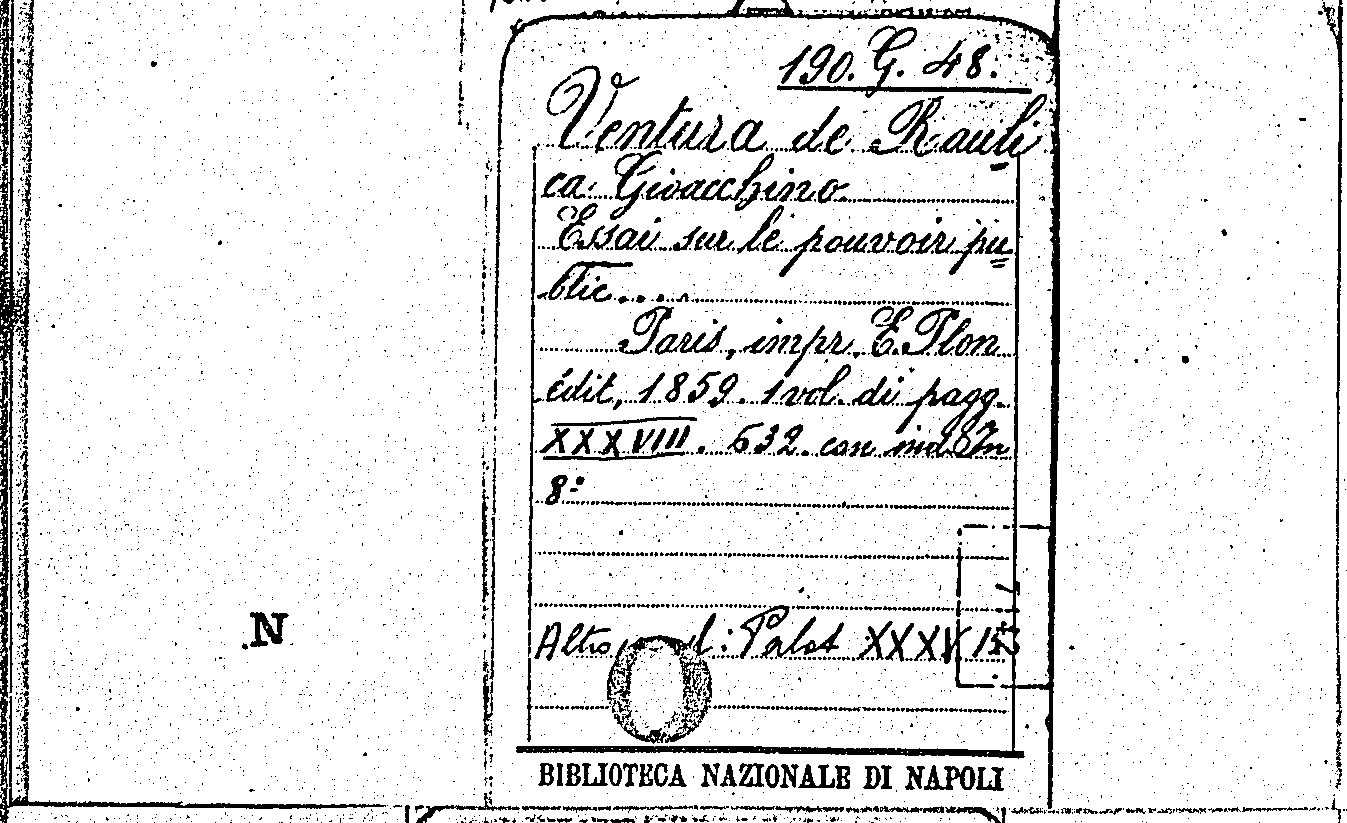 190. G. 48.
Ventura de Rauli
ca Gioacchino.
Essai sur le pouvoir pu
blic....
Paris, impr. E. Plon
édit, 1859. 1 vol. di pagg.
XXXVIII. 632. con ind. In
8º
N
Altro : Palat XXXV
BIBLIOTECA NAZIONALE DI NAPOLI